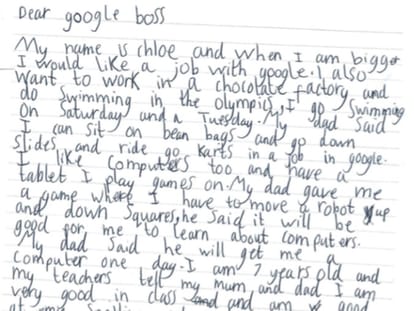 Dear google boss
My name is chloe and when I am bigger
I would like a job with google. I also
want to work in a chocolate factory and
do swimming in the olympics, I go swimming
on Saturday and a Tuesday. My dad said
I can sit on bean bags and go down
slides and ride go karts in a job in google.
I like computers too and have a
tablet I play games on. My dad gave me
a game where I have to move a robot up
and down squares, he said it will be
good for me to learn about computers.
My dad said he will get me a
computer one day. I am 7 years old and
my teachers tell my mum and dad I am
very good in class and and am good
at my